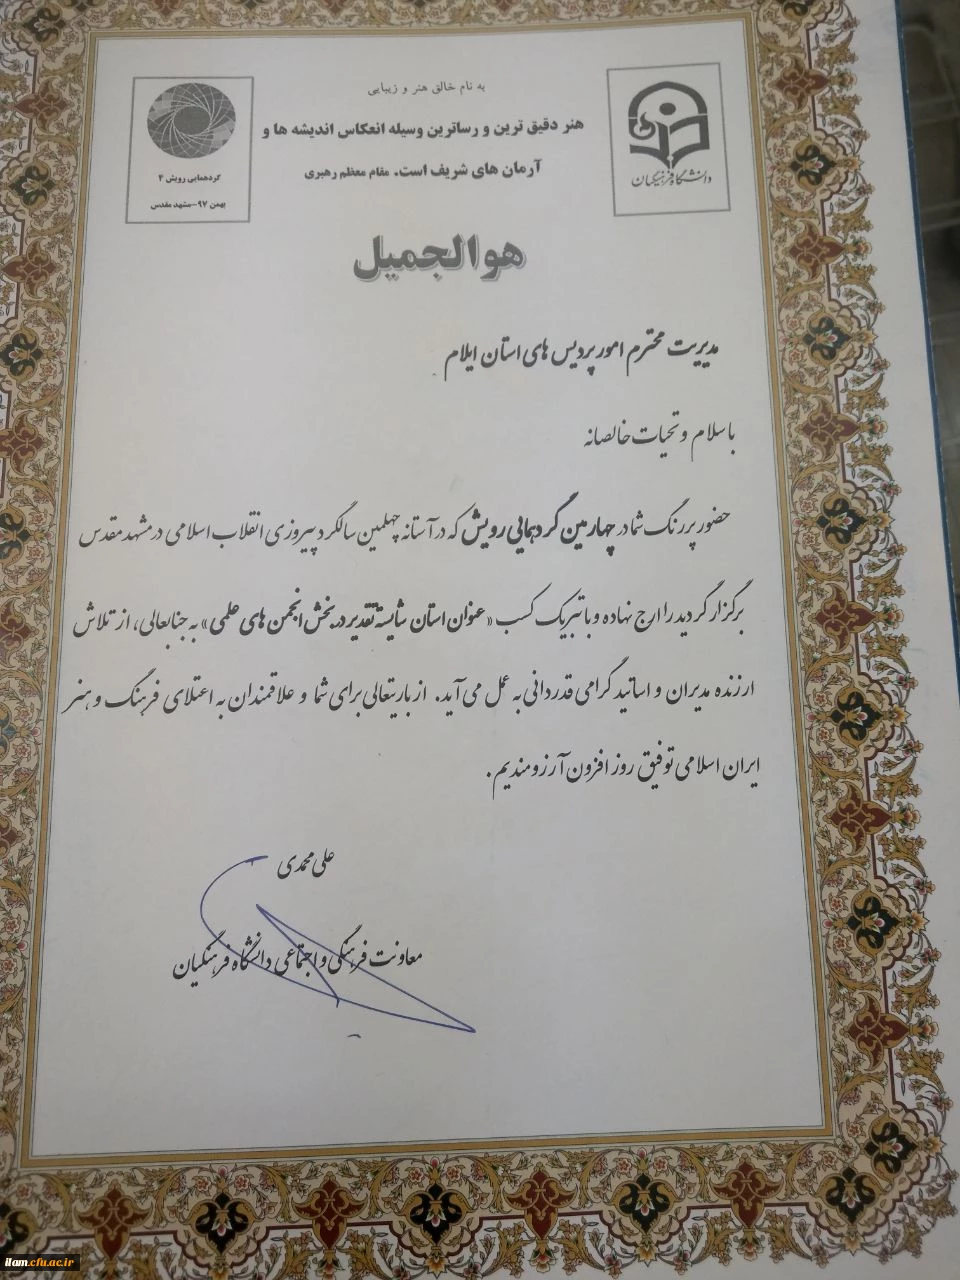 به نام خالق هنر و زیبایی
هنر دقیق ترین و رساترین وسیله انعکاس اندیشه ها و
آرمان های شریف است. مقام معظم رهبری
دانشگاه فرهنگیان
گردهمایی رویش ۴
بهمن ۹۷-مشهد مقدس
هوالجمیل
مدیریت محترم امور پردیس های استان ایلام
با سلام و تحیات خالصانه
حضور پررنگ شما در چهارمین گردهمایی رویش که در آستانه چهلمین سالگرد پیروزی انقلاب اسلامی در مشهد مقدس
برگزار گردید را ارج نهاده و با تبریک کسب «عنوان استان شایسته تقدیر در بخش انجمن های علمی» به جنابعالی، از تلاش
ارزنده مدیران و اساتید گرامی قدردانی به عمل می آید. از باریتعالی برای شما و علاقمندان به اعتلای فرهنگ و هنر
ایران اسلامی توفیق روز افزون آرزومندیم.
علی محمدی
معاونت فرهنگی و اجتماعی دانشگاه فرهنگیان
ilam.cfu.ac.ir